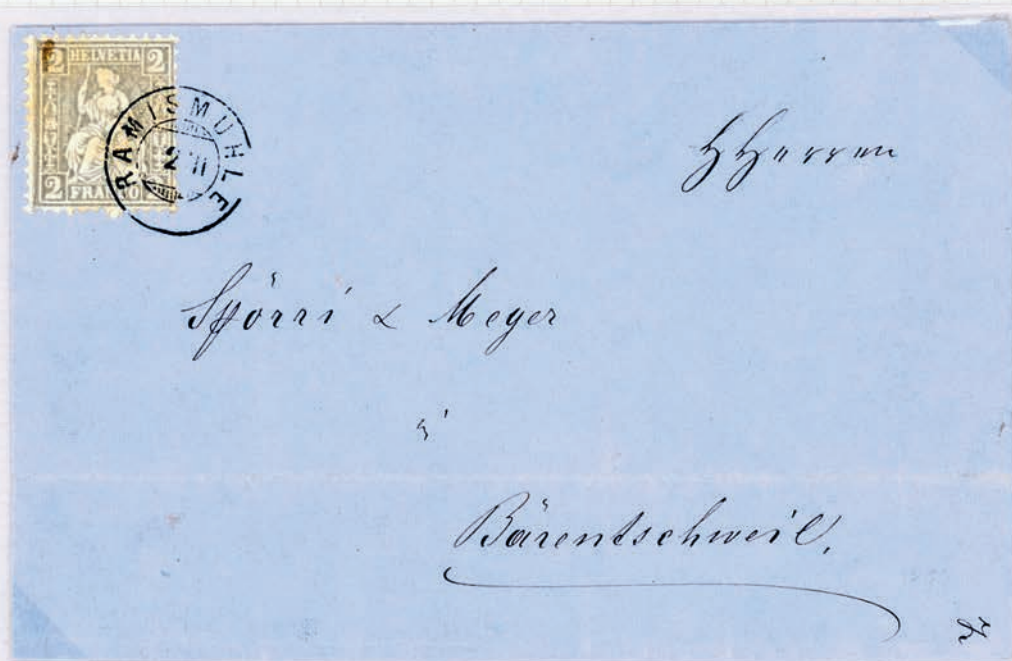 2 HELVETIA 2
2 FRANCO 2
RAMISMÜHLE
HHerren
Spörri & Meyer
in
Bärentschweil.